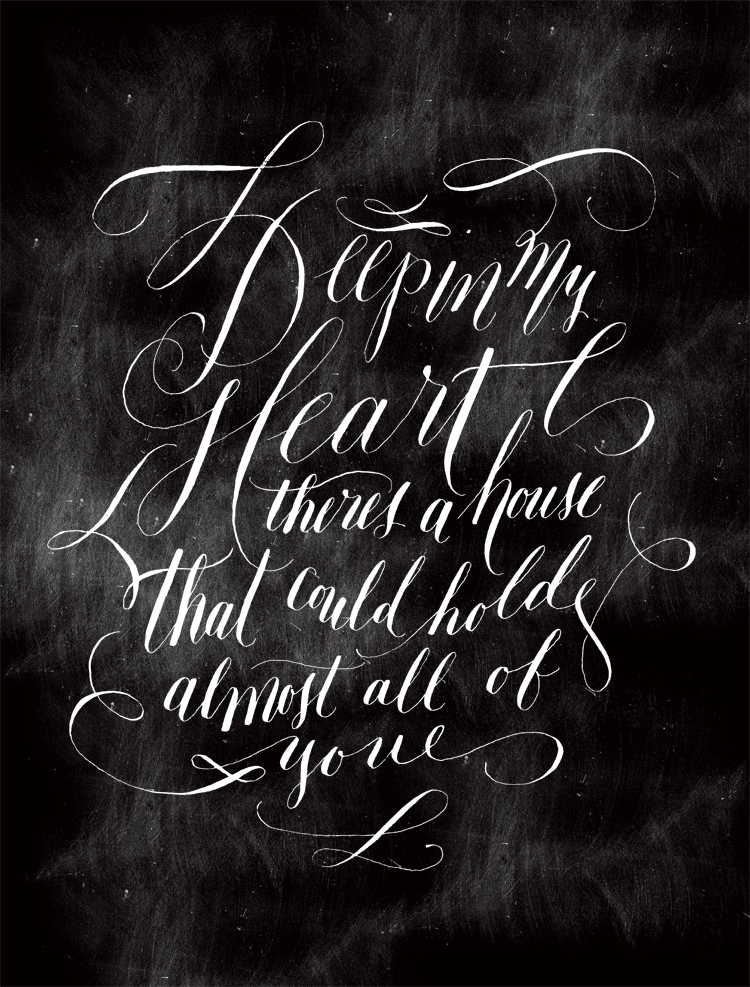 Deep in my
Heart
theres a house
that could hold
almost all of
you